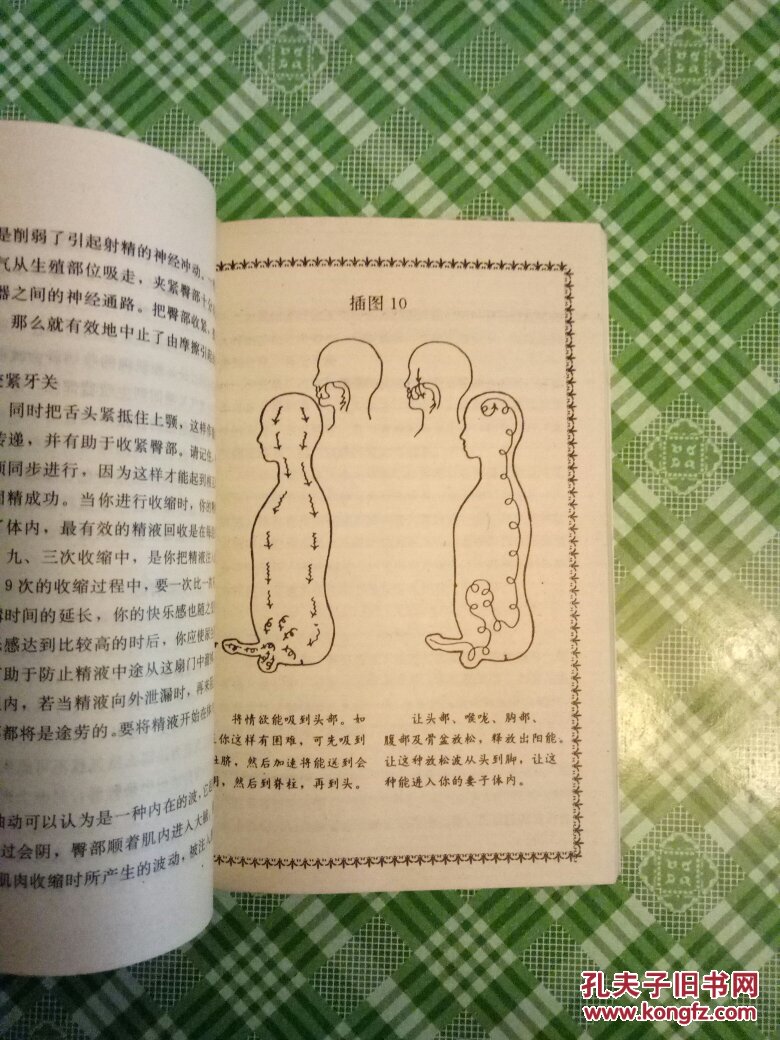 是削弱了引起射精的神经冲动、
气从生殖部位吸走，夹紧臀部十
器之间的神经通路。把臀部收紧、
，那么就有效地中止了由摩擦引
紧牙关
同时把舌头紧抵住上颚，这样
传递，并有助于收紧臀部。请记住，
须同步进行，因为这样才能起到
闭精成功。当你进行收缩时，你的
体内，最有效的精液回收是在每
九、三次收缩中，是你把精液
9次的收缩过程中，要一次比一
时间的延长，你的快乐感也随之
感达到比较高的时后，你应使
助于防止精液中途从这扇门中
内，若当精液向外泄漏时，再来
都将是途劳的。要将精液开始在
动可以认为是一种内在的波，它
过会阴，臀部顺着肌内进入大
肌肉收缩时所产生的波动，被注
插图10
将情欲能吸到头部。如
你这样有困难，可先吸到
脐，然后加速将能送到会
阴，然后到脊柱，再到头。
让头部、喉咙、胸部、
腹部及骨盆放松，释放出阳能。
让这种放松波从头到脚，让这
种能进入你的妻子体内。
孔夫子旧书网
www.kongfz.com